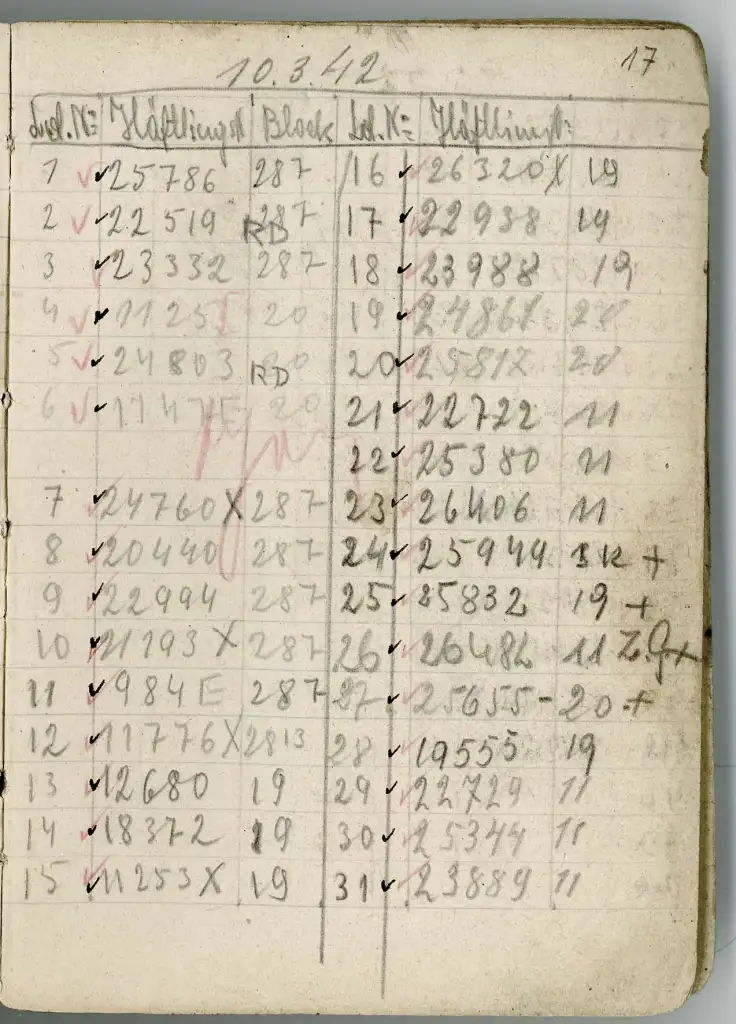 10.3.42 17
Lud. Nr Häftlingsnr Block Ld. Nr Häftlingsnr
1 25786 287 16 26320 X 19
2 22519 287 RD 17 22938 19
3 23332 287 18 23988 19
4 11251 20 19 24861 20
5 24803 20 RD 20 25817 20
6 1147E 20 21 22722 11
22 25380 11
7 24760 X 287 23 26406 11
8 20440 287 24 25949 SK +
9 22994 287 25 25832 19 +
10 21193 X 287 26 26482 11 Z.G +
11 984E 287 27 25655 - 20 +
12 11776 X 2813 28 19555 19
13 12680 19 29 22729 11
14 18372 19 30 25344 11
15 11253 X 19 31 23889 11